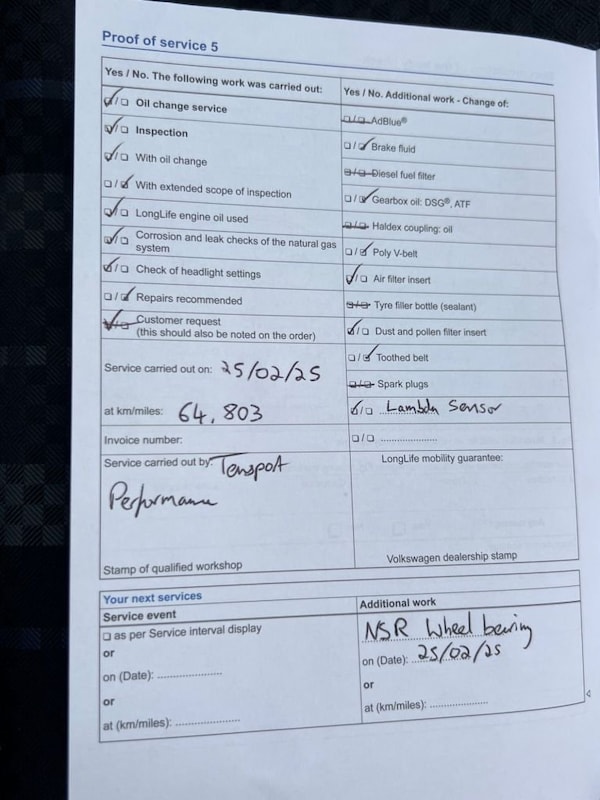 Proof of service 5
Yes / No. The following work was carried out:
☑/☐ Oil change service
☑/☐ Inspection
☑/☐ With oil change
☐/☑ With extended scope of inspection
☑/☐ LongLife engine oil used
☑/☐ Corrosion and leak checks of the natural gas
system
☑/☐ Check of headlight settings
☐/☑ Repairs recommended
☑/☐ Customer request
(this should also be noted on the order)
Service carried out on: 25/02/25
at km/miles: 64,803
Invoice number:
Service carried out by:
Performance
Stamp of qualified workshop
Yes / No. Additional work - Change of:
☐/☐ AdBlue®
☐/☑ Brake fluid
☐/☐ Diesel fuel filter
☐/☑ Gearbox oil: DSG®, ATF
☐/☐ Haldex coupling: oil
☐/☑ Poly V-belt
☑/☐ Air filter insert
☐/☐ Tyre filler bottle (sealant)
☑/☐ Dust and pollen filter insert
☐/☑ Toothed belt
☐/☐ Spark plugs
☑/☐ Lambda Sensor
☐/☐ ....................
LongLife mobility guarantee:
Volkswagen dealership stamp
Your next services
Service event
☐ as per Service interval display
or
on (Date): ....................
or
at (km/miles): ....................
Additional work
NSR Wheel bearing
on (Date): 25/02/25
or
at (km/miles): ....................